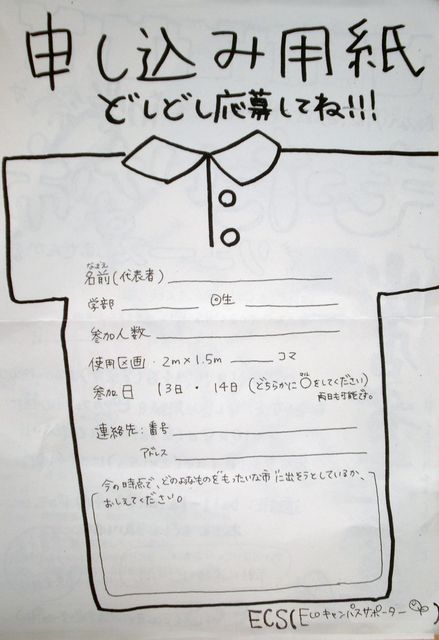 申し込み用紙
どしどし応募してね!!!
なまえ
名前(代表者)
学部 回生
参加人数
使用区画・2m×1.5m コマ
参加日 13日・14日(どちらかに○をしてください)
マル
両日も可能です。
連絡先:番号
アドレス
今の時点で、どのようなものを"もったいな市"に出そうとしているか、
おしえてください。
ECS(Ecoキャンパスサポーター)